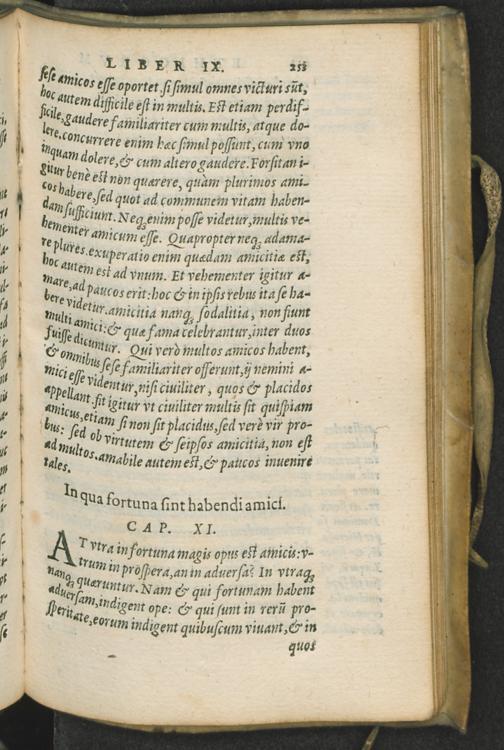 LIBER IX. 253
sese amicos esse oportet, si simul omnes victuri sũt,
hoc autem difficile est in multis. Est etiam perdif-
ficile, gaudere familiariter cum multis, atque do-
lere. concurrere enim hæc simul possunt, cum vno
inquam dolere, & cum altero gaudere. Forsitan i-
gitur benè est non quærere, quàm plurimos ami-
cos habere, sed quot ad communem vitam haben-
dam sufficiunt. Neq; enim posse videtur, multis ve-
hementer amicum esse. Quapropter neq; adama-
re plures. exuperatio enim quædam amicitia est,
hoc autem est ad vnum. Et vehementer igitur a-
mare, ad paucos erit: hoc & in ipsis rebus ita se ha-
bere videtur. amicitia nanq; sodalitia, non fiunt
multi amici: & quæ fama celebrantur, inter duos
fuisse dicuntur. Qui verò multos amicos habent,
& omnibus sese familiariter offerunt, ij nemini a-
mici esse videntur, nisi ciuiliter, quos & placidos
appellant. fit igitur vt ciuiliter multis sit quispiam
amicus, etiam si non sit placidus, sed verè vir pro-
bus: sed ob virtutem & seipsos amicitia, non est
ad multos. amabile autem est, & paucos inuenire
tales.
In qua fortuna sint habendi amici.
CAP. XI.
AT vtra in fortuna magis opus est amicis: v-
trum in prospera, an in aduersa? In vtraq;
nanq; quæruntur. Nam & qui fortunam habent
aduersam, indigent ope: & qui sunt in rerũ pro-
speritate, eorum indigent quibuscum viuant, & in
quos